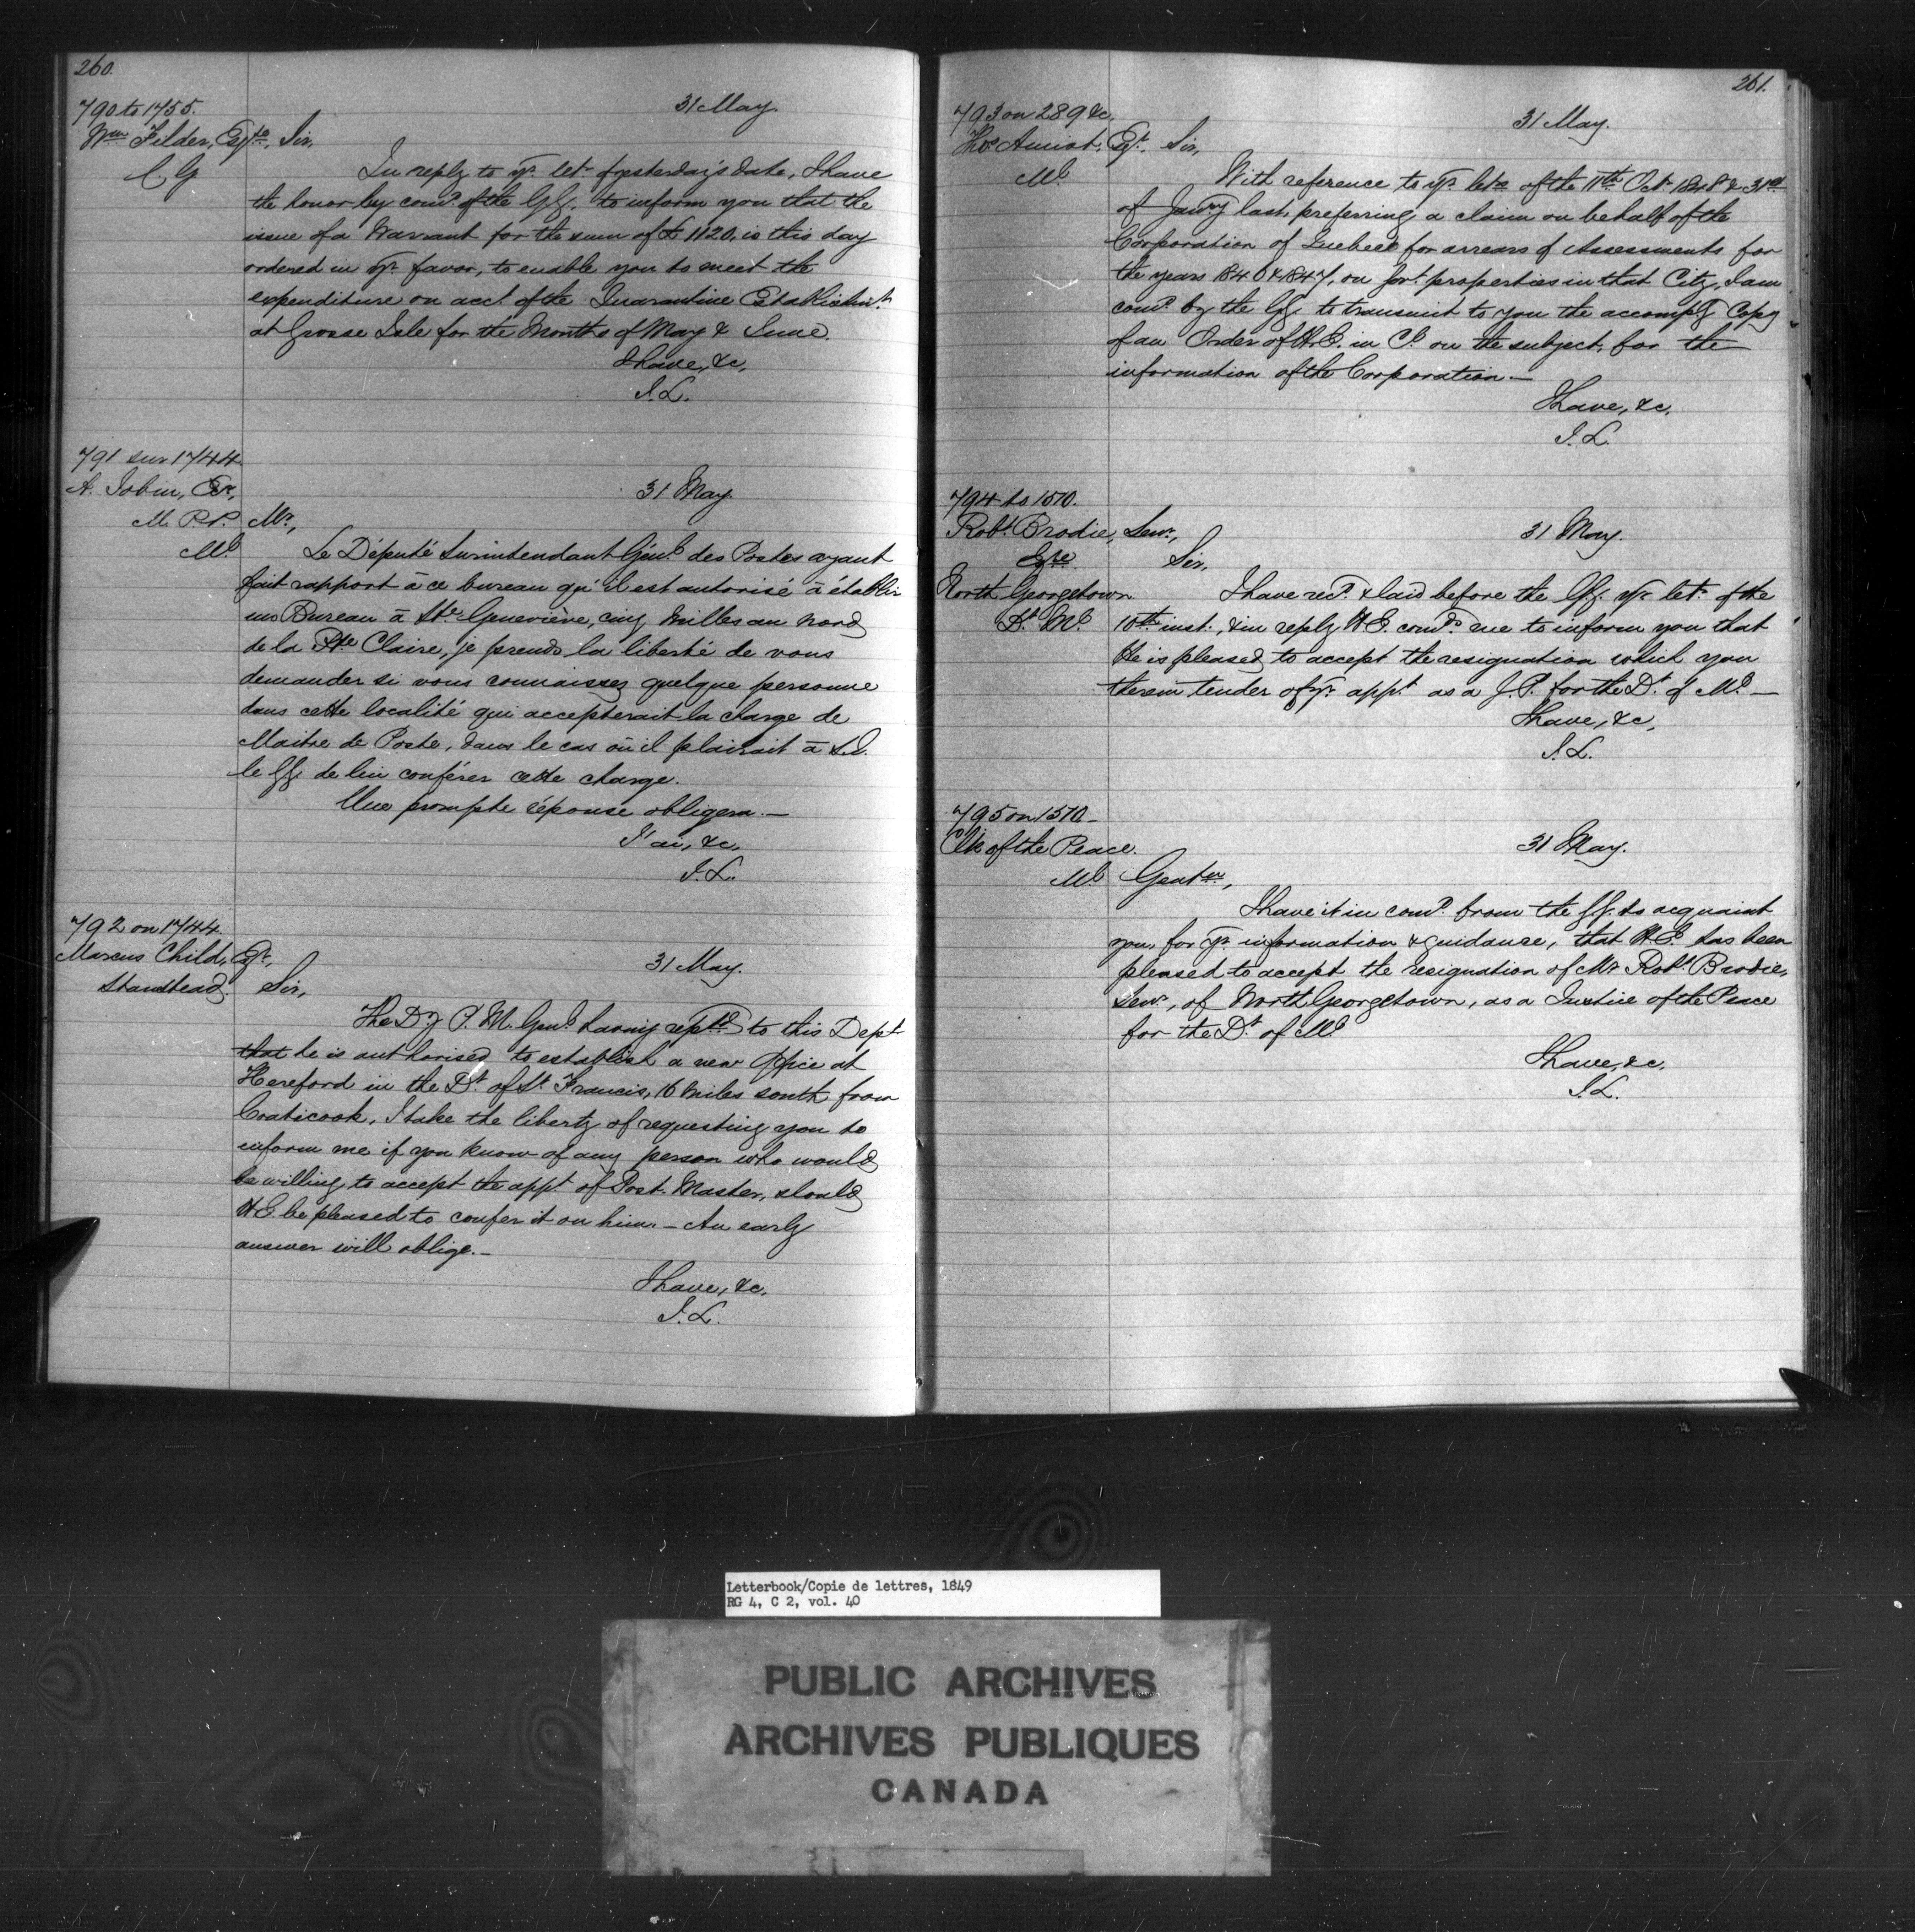 260.
790 to 1755.
31 May.
Wm Filder, Esqre, Sir,
C G
In reply to yr. letr of yesterday's date, I have
the honor by comd. of the GG. to inform you that the
issue of a Warrant for the sum of £1120, is this day
ordered in yr. favor, to enable you to meet the
expenditure on acct. of the Quarantine Establishmt.
at Grosse Isle for the Months of May & June.
I have, &c,
J.L.
791 sur 1744.
A. Jobin, Er,
31 May.
M. P.P. Mr,
Ml
Le Député Surintendant Génl des Postes ayant
fait rapport à ce bureau qu'il est autorisé à établir
un Bureau à Ste Geneviève, cinq milles au nord
de la Pte Claire, je prends la liberté de vous
demander si vous connaissez quelque personne
dans cette localité qui accepterait la charge de
Maitre de Poste, dans le cas où il plairait à S.E.
le GG. de lui conférer cette charge.
Une prompte réponse obligera.—
J'ai, &c,
J.L.
792 on 1744.
Marcus Child, Esqr,
31 May.
Standstead. Sir,
The Dy P. M. Genl having reptd to this Dept
that he is authorised to establish a new Office at
Hereford in the Dt. of St Francis, 16 miles south from
Coaticook, I take the liberty of requesting you to
inform me if you know of any person who would
be willing to accept the appt of Post Master, should
H.E. be pleased to confer it on him.— An early
answer will oblige.—
I have, &c,
J.L.
261.
793 on 289 &c,
31 May.
Thos Amiot, Esqr, Sir,
Ml
With reference to yr. letrs of the 11th Octr 1848 & 31st
of Janry last, preferring a claim on behalf of the
Corporation of Quebec for arrears of Assessments for
the years 1846 & 1847, on Govt. properties in that City, I am
comd. by the GG. to transmit to you the accompg Copy
of an Order of H.E. in Cl. on the subject, for the
information of the Corporation.—
I have, &c,
J.L.
794 to 1570.
Robt. Brodie, Senr,
31 May.
Esqre. Sir,
North Georgetown
Dt. Ml
I have recd. & laid before the GG. yr. letr. of the
10th inst., & in reply H.E. comds. me to inform you that
He is pleased to accept the resignation which you
therein tender of yr. appt as a J.P. for the Dt. of Ml—
I have, &c,
J.L.
795 on 1570—
Clk of the Peace.
31 May.
Ml Gentn,
I have it in comd. from the GG. to acquaint
you, for yr. information & guidance, that H.E. has been
pleased to accept the resignation of Mr Robt. Brodie,
Senr, of North Georgetown, as a Justice of the Peace
for the Dt. of Ml
I have, &c,
J.L.
Letterbook/Copie de lettres, 1849
RG 4, C 2, vol. 40
PUBLIC ARCHIVES
ARCHIVES PUBLIQUES
CANADA